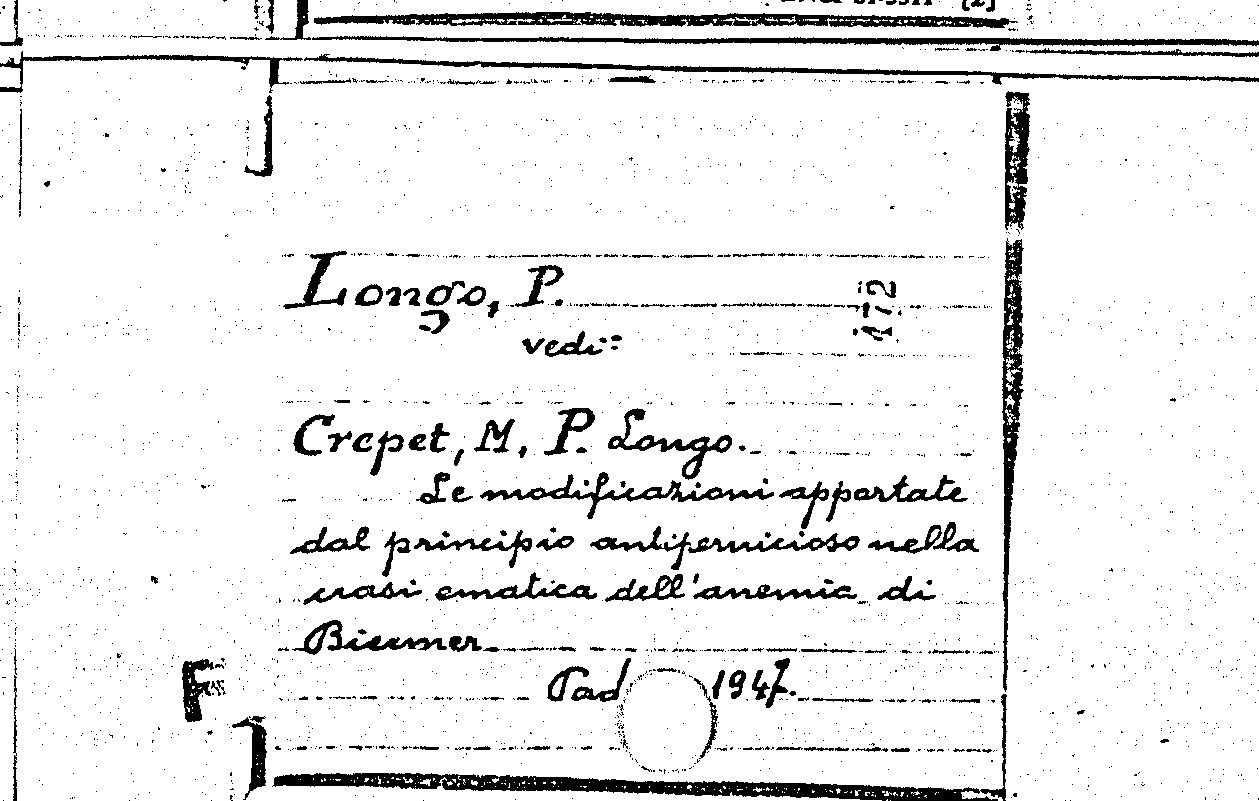 [2]
Longo, P.
172
vedi:
Crepet, M, P. Longo.
Le modificazioni apportate
dal principio antipernicioso nella
crasi ematica dell'anemia di
Biermer
Pad 1947.
F